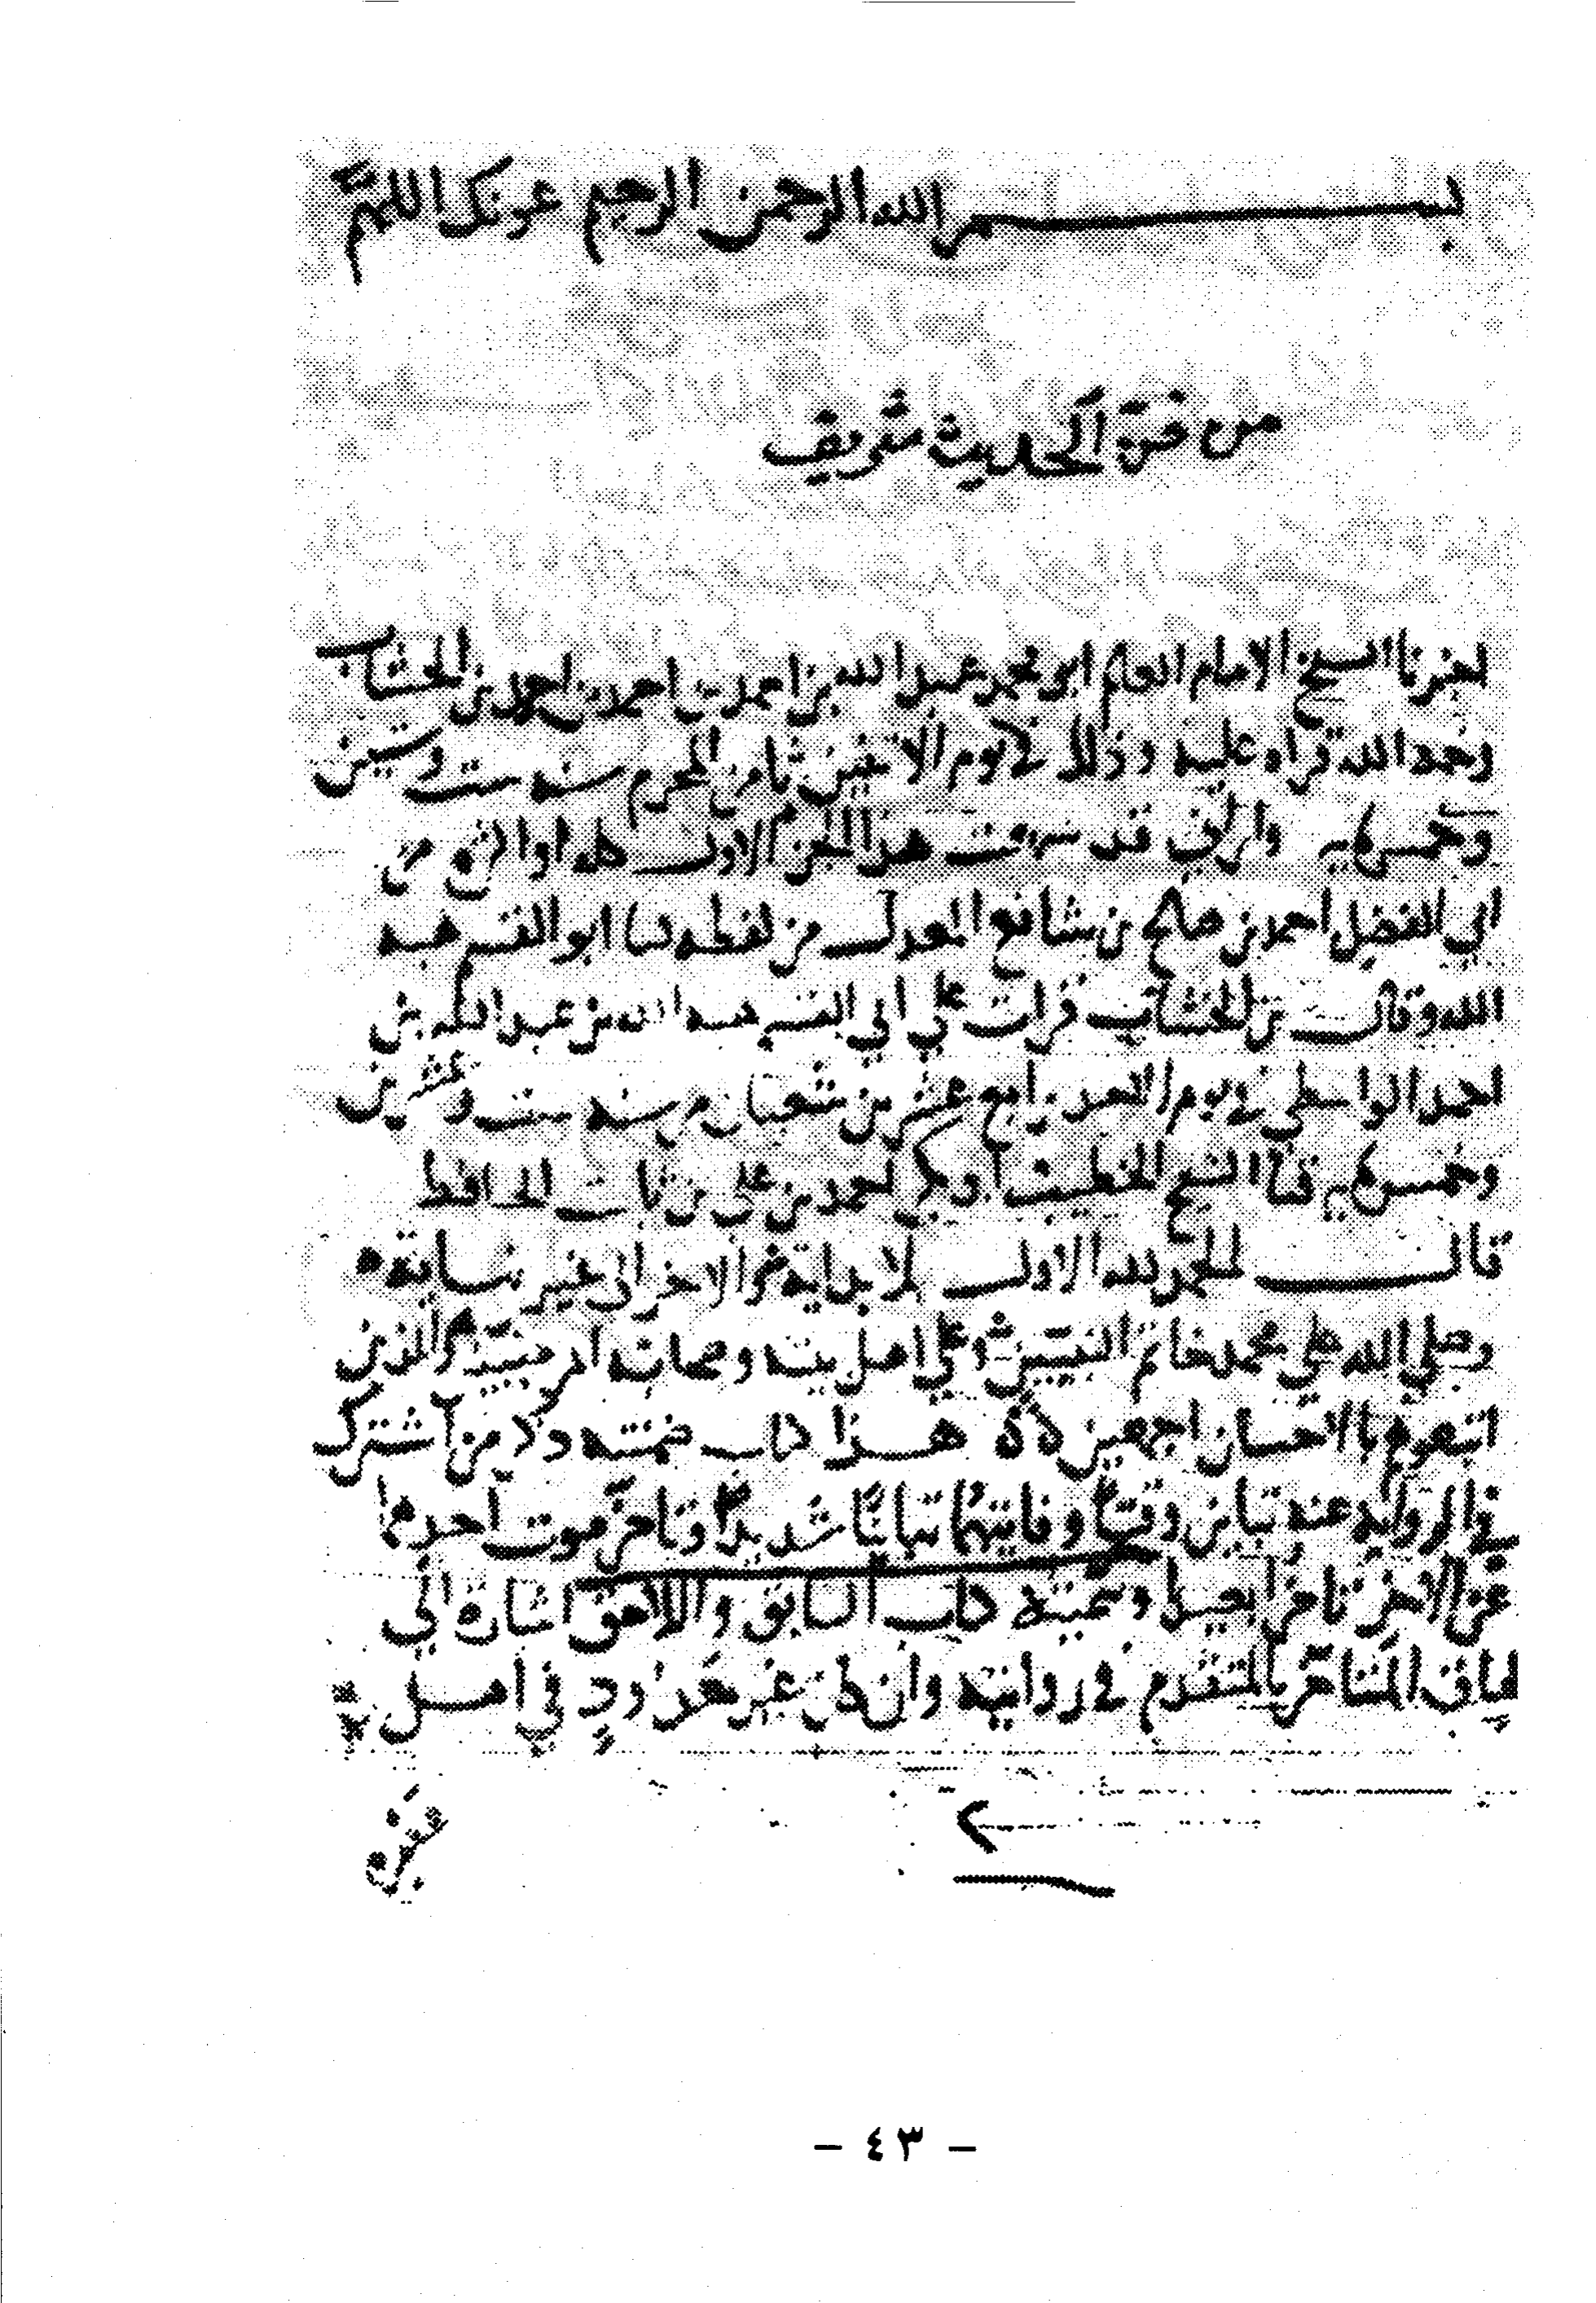 بسم الله الرحمن الرحيم عونك اللهم
من فن الحديث شريف
اخبرنا الشيخ الامام العالم ابو محمد عبد الله بن احمد بن احمد بن احمد بن الخشاب
رحمه الله قراه عليه وذلك في يوم الاثنين ثامن المحرم سنه ست وستين
وخمسمايه قد سمعت هذا الجزء الاول من
ابي الفضل احمد بن صالح بن شافع المعدل من لفظه ابو القسم هبه
الله وقال بن الخشاب قرات على ابي القسم هبه الله بن عبد الله بن
احمد الواسطي في يوم الاحد رابع عشرين شعبان من سنه ست وعشرين
وخمسمايه الشيخ الخطيب ابو بكر احمد بن علي بن ثابت الحافظ
قال الحمد لله الاول لا بداية والاخر الى غير نهاية
وصلى الله على محمد خاتم النبيين وعلى اهل بيته وصحابته والذين
اتبعوهم بالاحسان اجمعين هذا كتاب ضمنته ذكر من اشترك
في الروايه عنه تباين وقت وفاتيهما تباينا شديدا وتاخر موت احدهما
عن الاخر تاخرا بعيدا وسميته كتاب السابق واللاحق اشارة الى
لحاق المتاخر بالمتقدم في روايته وان كان غير معدود في اهل
- ٤٣ -